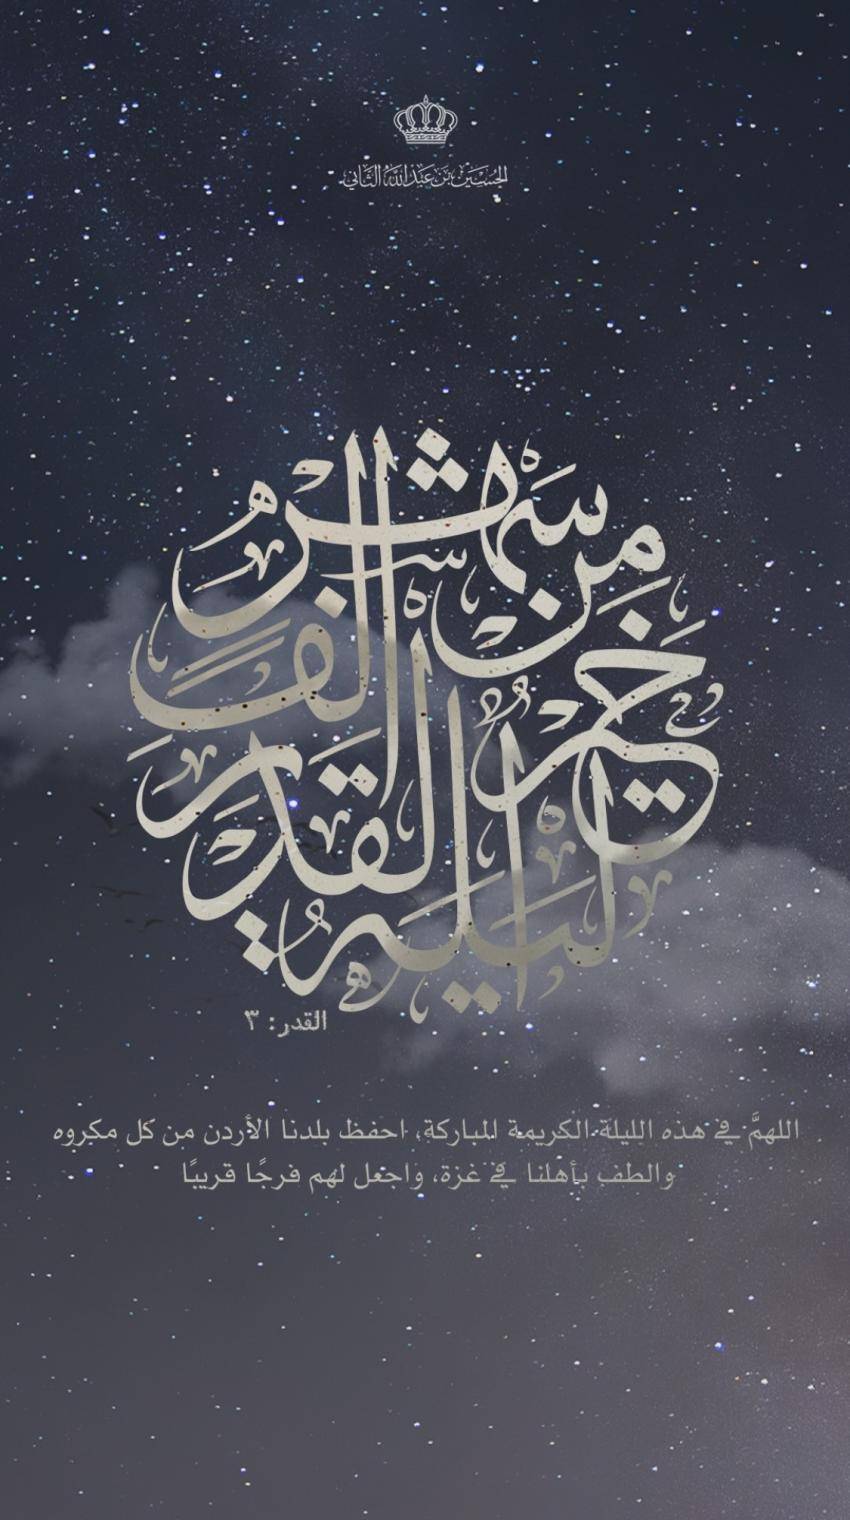 الحسين بن عبدالله الثاني
ليلة القدر خير من ألف شهر
القدر: ٣
اللهمَّ في هذه الليلة الكريمة المباركة، احفظ بلدنا الأردن من كل مكروه
والطف بأهلنا في غزة، واجعل لهم فرجًا قريبًا